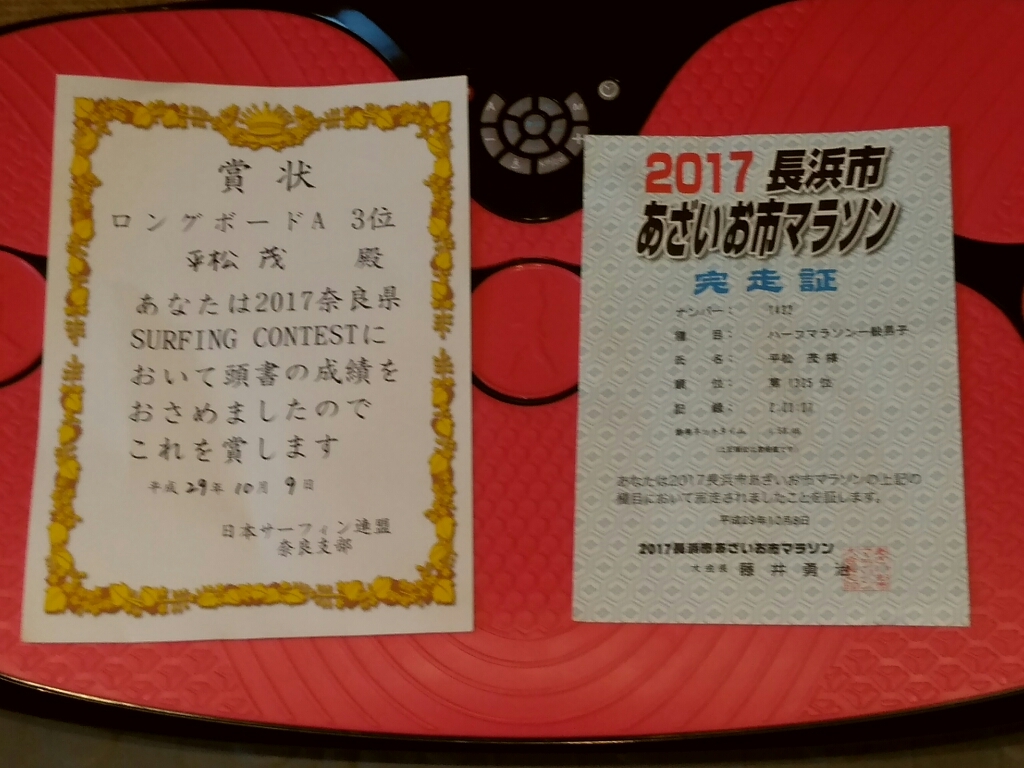 賞状
ロングボードA 3位
平松 茂 殿
あなたは2017奈良県
SURFING CONTESTに
おいて頭書の成績を
おさめましたので
これを賞します
平成29年10月9日
日本サーフィン連盟
奈良支部
2017 長浜市
あざいお市マラソン
完走証
ナンバー: 1432
種目: ハーフマラソン一般男子
氏名: 平松 茂 様
順位: 第1305位
記録:
参考ネットタイム
あなたは2017長浜市あざいお市マラソンの上記の
種目において完走されましたことを証します。
平成29年10月8日
2017長浜市あざいお市マラソン
大会長 藤井勇治